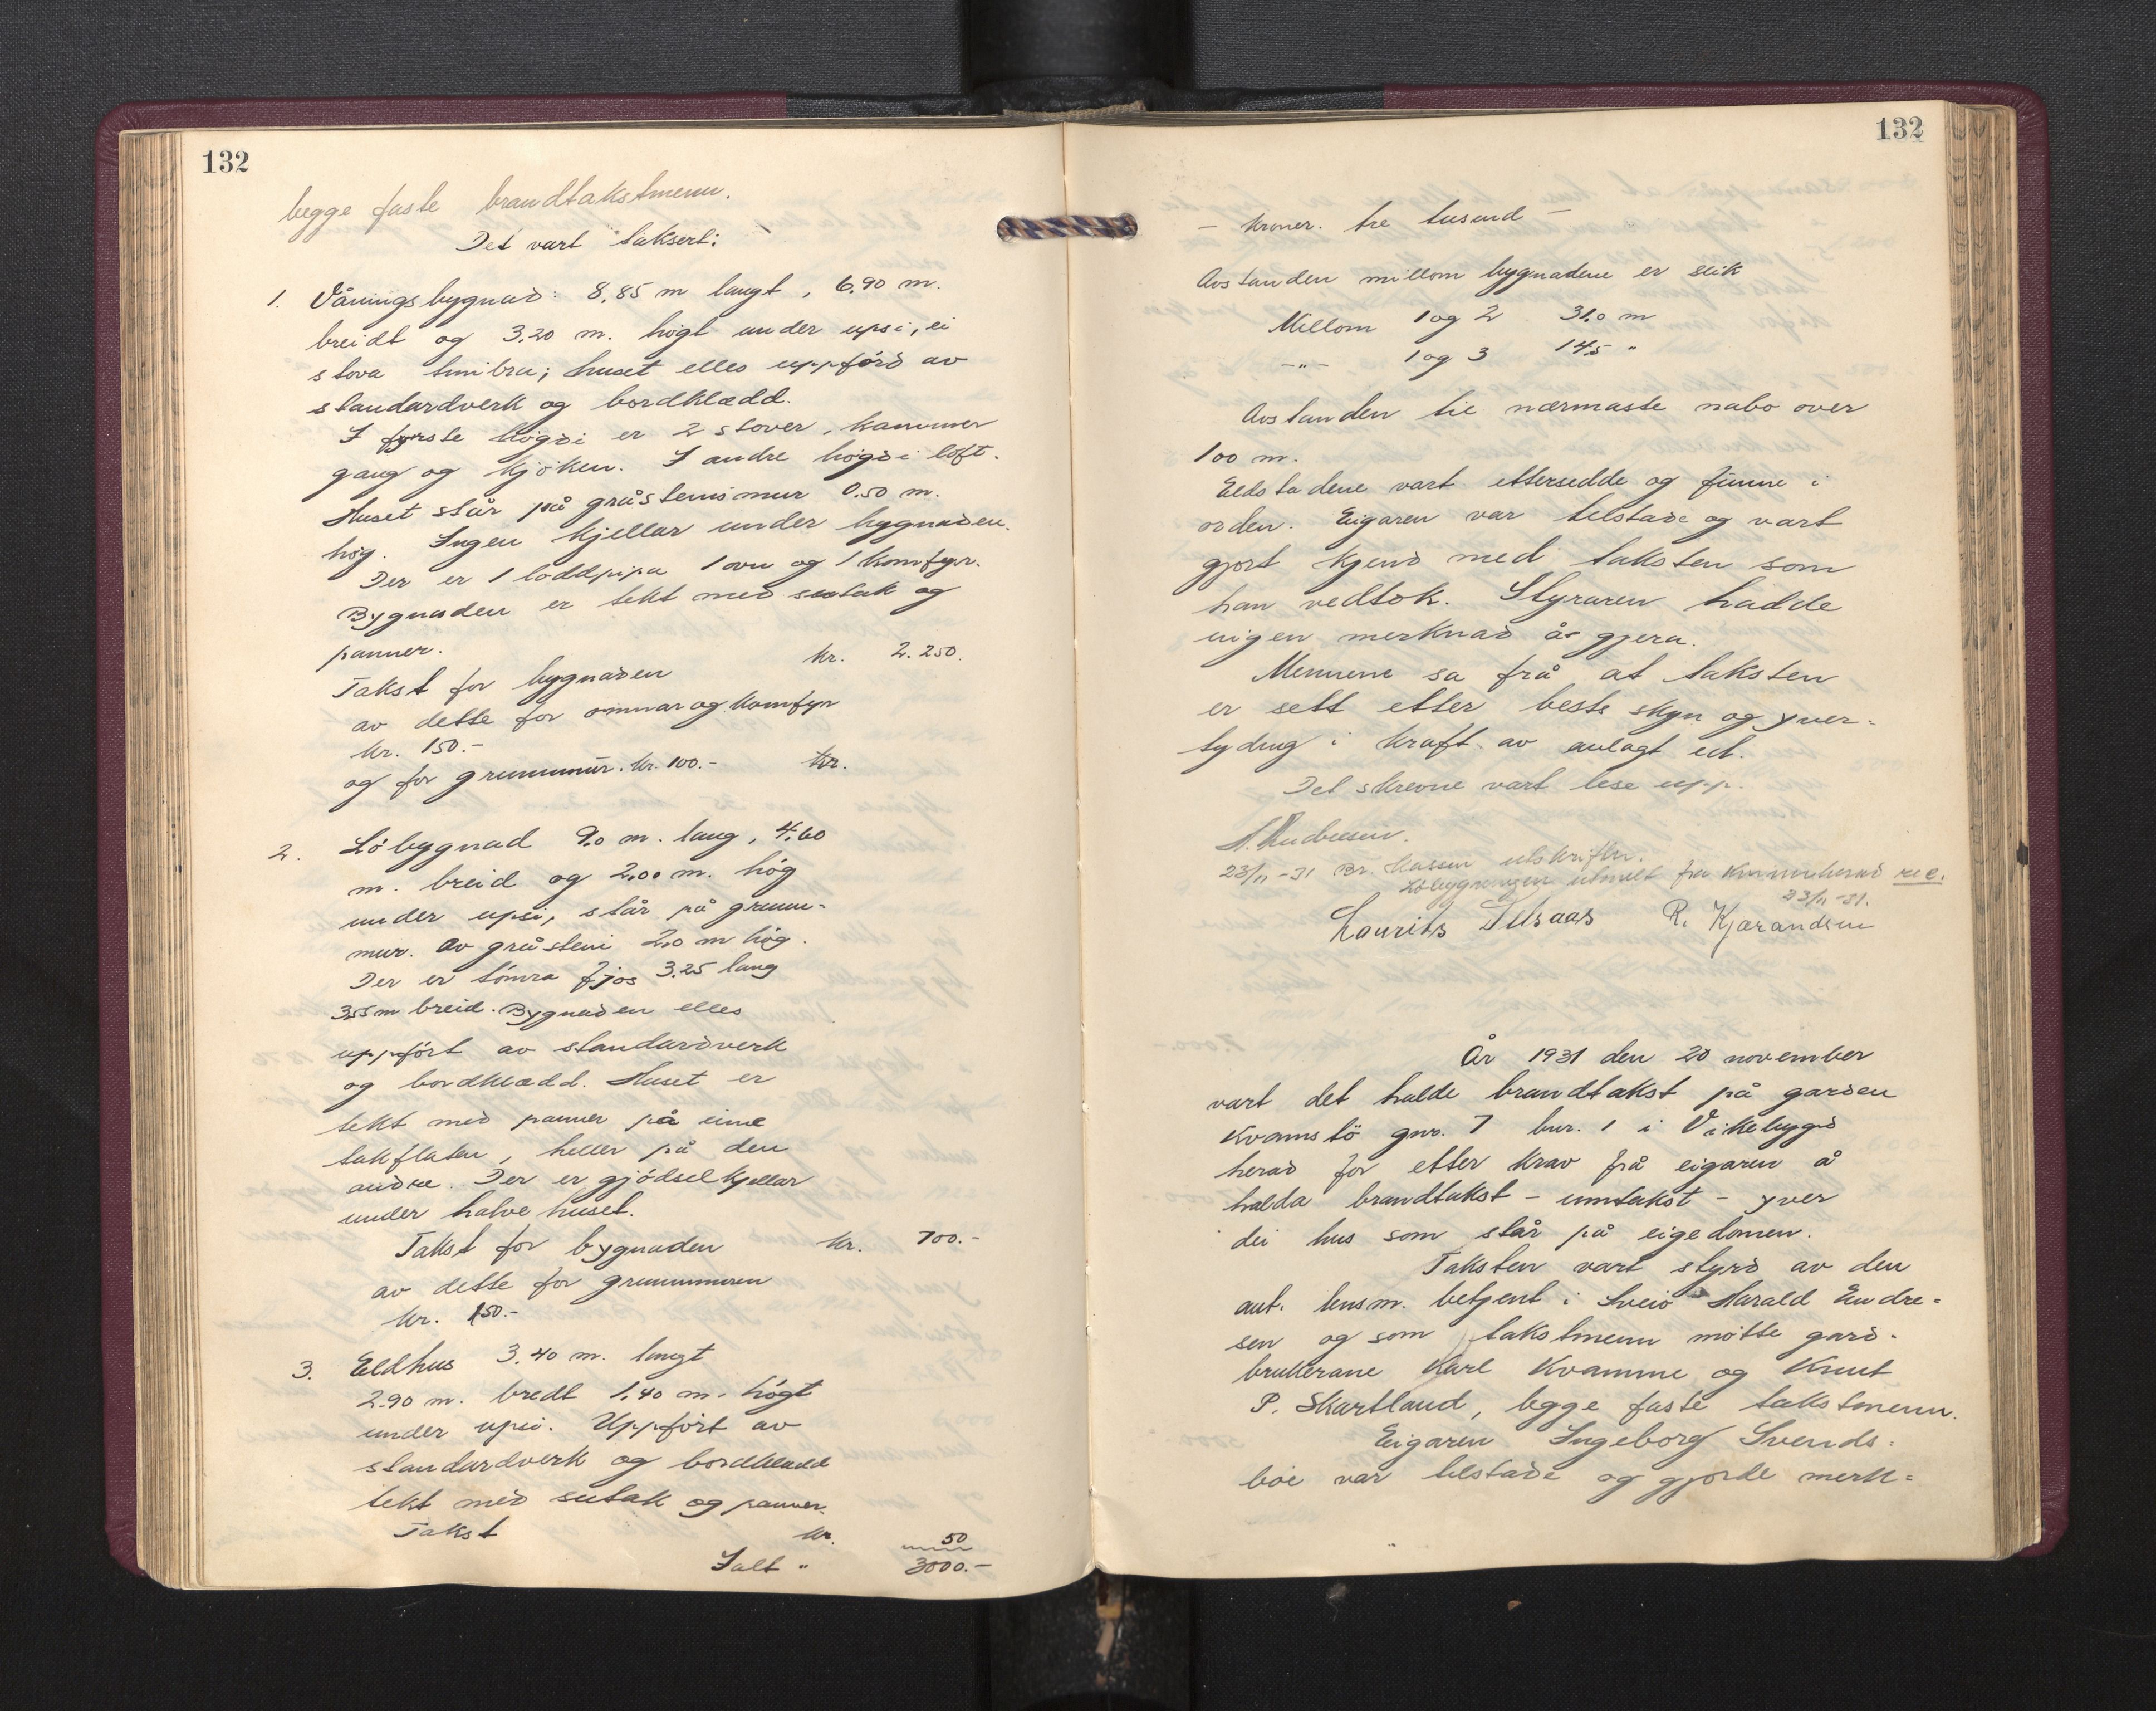 132
begge faste brandtakstmenn.
Det vart taksert:
1. Våningsbygnað: 8,85 m langt, 6,90 m.
breidt og 3,20 m. högt under upsi, ei
stova timbra; huset elles uppförð av
standardverk og bordklædd.
I fyrste högði er 2 stover, kammer
gang og kjöken. I andre högði loft.
Huset står på gråsteinsmur 0.50 m.
hög. Ingen kjellar under bygnaðen.
Der er 1 loddpipa 1 ovn og 1 komfyr.
Bygnaden er tekt með sutak og
panner.
Takst for bygnaðen kr. 2.250.
av dette for omnar og komfyr
kr. 150.-
og for grunnmur. kr. 100.- kr.
2. Löbygnad 9.0 m. lang, 4,60
m. breid og 2,00 m. hög
under upsi, står på grunn-
mur. av gråstein 2,0 m hög.
Der er tömra fjos 3.25 lang
3,55 m breid. Bygnaðen elles
uppfört av standarðverk
og bordklædd. Huset er
tekt með panner på eine
takflaten, heller på den
andre. Der er gjödselkjellar
under halve huset.
Takst for bygnaden kr. 700.-
av dette for grunnmuren
kr. 150.-
3. Eldhus 3.40 m. langt
2.90 m. bredt 1,40 m. högt
under upsi. Uppfört av
standardverk og bordkledd
tekt með sutak og panner.
Takst kr. 50
Ialt " 3000.-
132
- kroner. tre tusund -
Avstanden millom bygnadene er slik
Millom 1 og 2 31.0 m
-"- 1 og 3 14,5 "
Avstanden til nærmaste nabo over
100 m.
Eldstadene vart ettersedde og funne i
orden. Eigaren var tilstaðe og vart
gjort kjenð með taksten som
han vedtok. Styraren hadde
ingen merknað å gjera.
Mennene sa frå at taksten
er sett etter beste skyn og yver-
tydng i kraft av avlagt eið.
Det skrevne vart lese upp.
H. Endresen.
23/11-31 Br. kassen utskriftn.
Löbygningen utmelt fra Kvinnherað
23/11-31.
Laurits R. Kjærandsen
År 1931 den 20 november
vart det halde brandtakst på garðen
Kvamstö gnr. 7 bnr. 1 i Vikebygð
herað for etter krav frå eigaren å
halda brandtakst - umtakst - yver
dei hus som står på eigedomen.
Taksten vart styrð av den
aut. lensm. betjent i Sveio Harald Endre-
sen og som takstmenn mötte garð-
brukerane Karl Kvamme og Knut
P. Skartland, begge faste takstmenn.
Eigaren Ingeborg Svends-
böe var tilstaðe og gjorde merk-